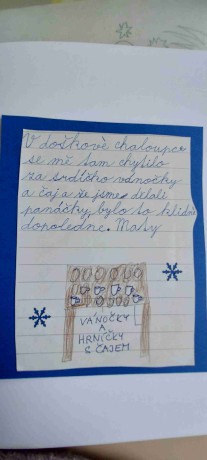 V doškové chaloupce
se mě tam chytilo
za srdíčko vánočky
a čaj a že jsme dělali
panáčky, bylo to klidné
dopoledne. Maty
VÁNOČKY
A
HRNÍČKY
S ČAJEM